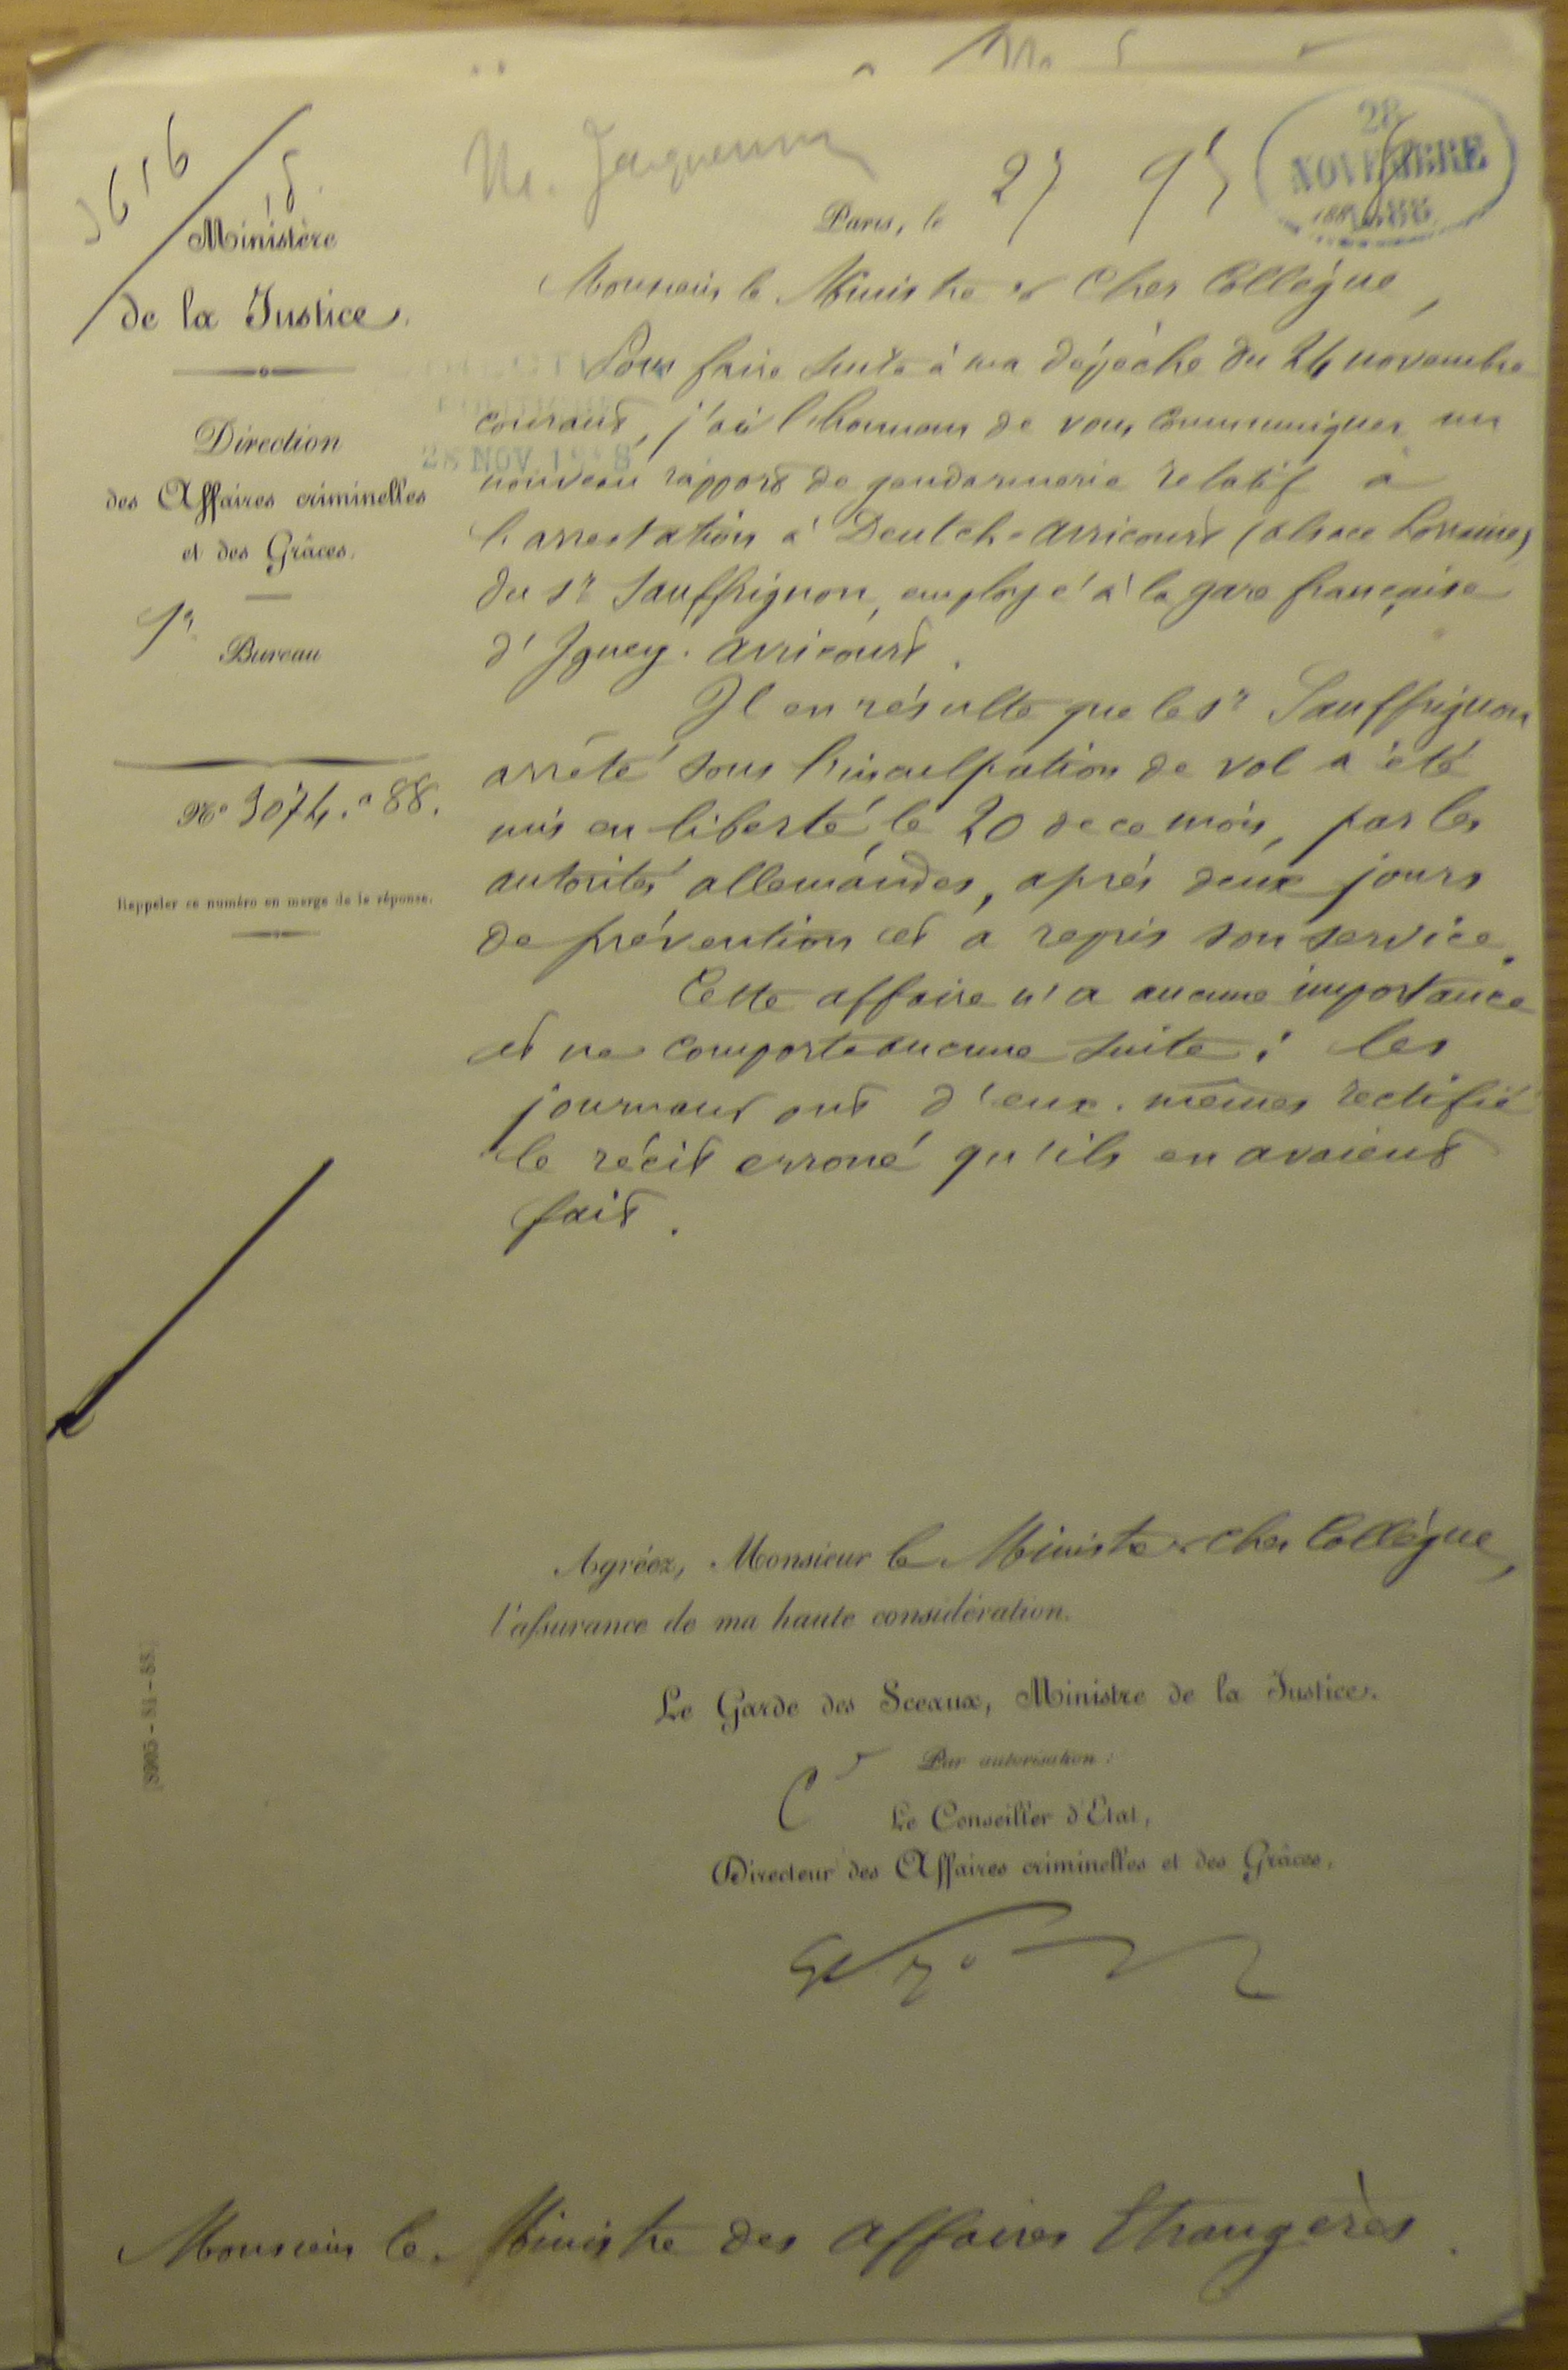 M. Jacquemin
Ministère
de la Justice.
Direction
des Affaires criminelles
et des Grâces.
1er
Bureau
No 3074. a 88.
Rappeler ce numéro en marge de la réponse.
Paris, le 27 9bre 188
28
NOVEMBRE
1888
28 NOV. 1888
Monsieur le Ministre et Cher Collègue,
Pour faire suite à ma dépêche du 24 novembre
courant, j'ai l'honneur de vous communiquer un
nouveau rapport de gendarmerie relatif à
l'arrestation à Deutch-Avricourt (Alsace Lorraine)
du Sr Sauffrignon, employé à la gare française
d'Igney-Avricourt.
Il en résulte que le Sr Sauffrignon
arrêté sous l'inculpation de vol a été
mis en liberté, le 20 de ce mois, par les
autorités allemandes, après deux jours
de prévention et a repris son service.
Cette affaire n'a aucune importance
et ne comporte aucune suite ; les
journaux ont d'eux-mêmes rectifié
le récit erroné qu'ils en avaient
fait.
Agréez, Monsieur le Ministre et cher Collègue,
l'assurance de ma haute considération.
Le Garde des Sceaux, Ministre de la Justice.
Par autorisation :
Le Conseiller d'Etat,
Directeur des Affaires criminelles et des Grâces,
Monsieur le Ministre des Affaires Etrangères.